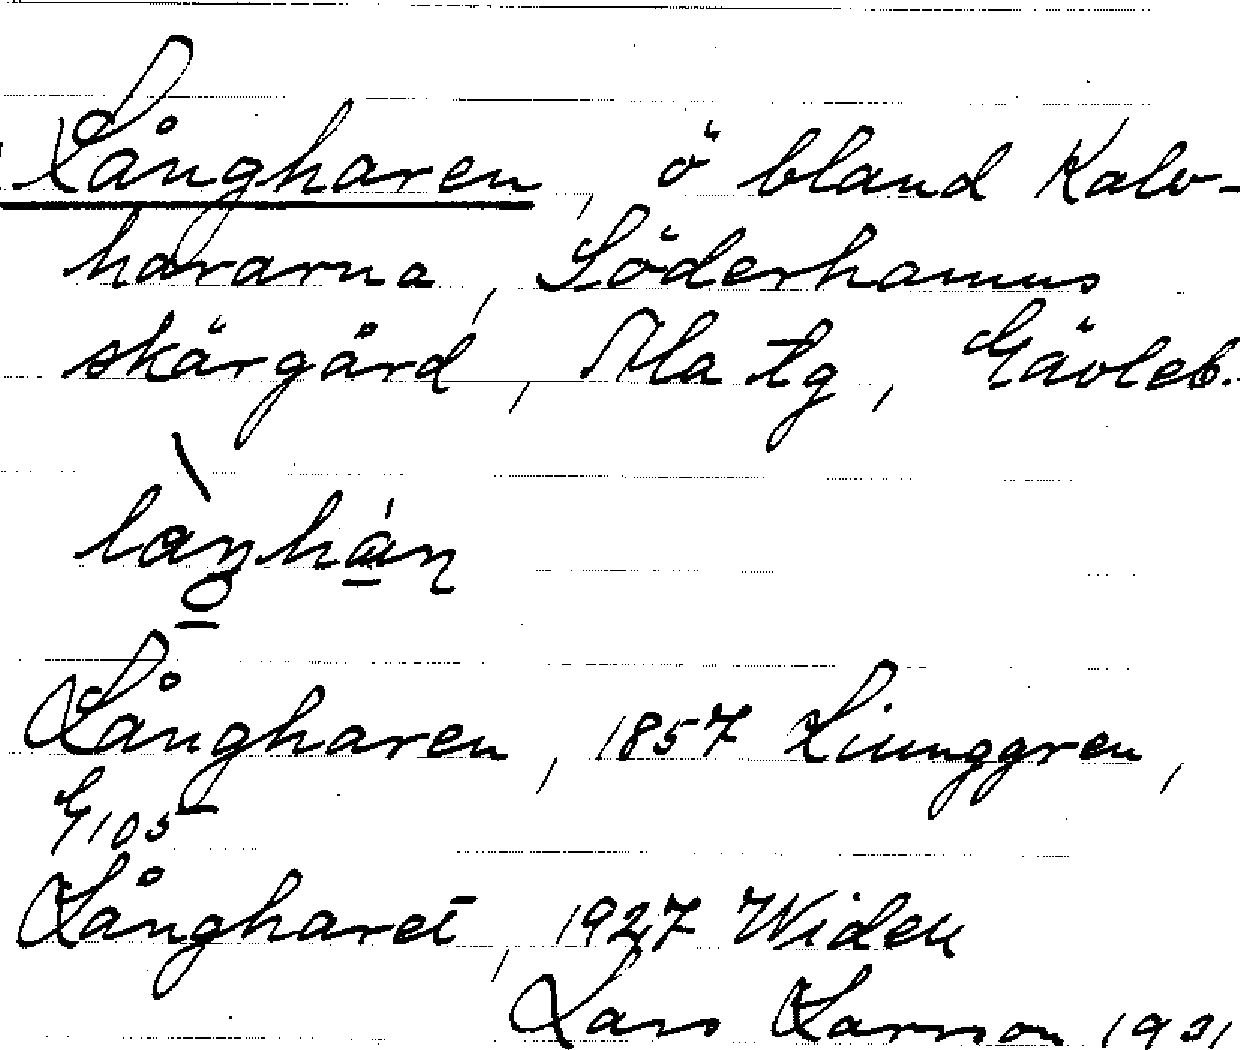 Långharen, ö bland Kalv-
hararna, Söderhamns
skärgård, Ala tg, Gävleb.
Långharen, 1857 Liunggren,
G105
Långharet, 1927 Widen
Lars Larsson 1931